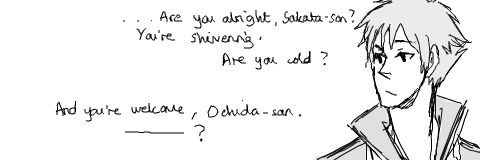 . . . Are you alright, Sakata-san?
You're shivering.
Are you cold ?
And you're welcome, Ochida-san.
?